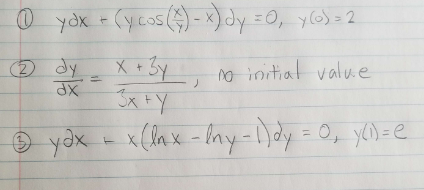 ① ydx + (y cos(x/y) - x)dy = 0, y(0) = 2
② dy/dx = x + 3y / 3x + y, no initial value
③ ydx + x(lnx - lny - 1)dy = 0, y(1) = e